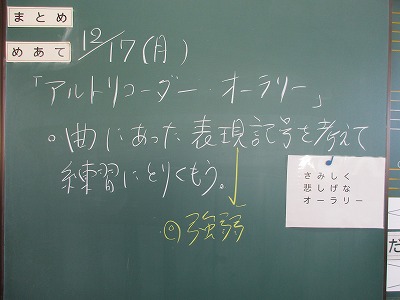 まとめ
めあて
12/17(月)
「アルトリコーダー・オーラリー」
○曲にあった表現記号を考えて
練習にとりくもう。
◎強弱
さみしく
悲しげな
オーラリー